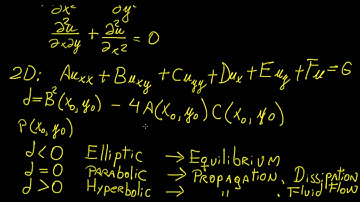 ∂x² ∂y²
∂²u/∂x∂y + ∂²u/∂x² = 0
2D: Auxx + Buxy + Cuyy + Dux + Euy + Fu = G
d = B²(x₀,y₀) − 4A(x₀,y₀)C(x₀,y₀)
P(x₀,y₀)
d<0 Elliptic → Equilibrium
d=0 Parabolic → Propagation, Dissipation
d>0 Hyperbolic → " , Fluid Flow